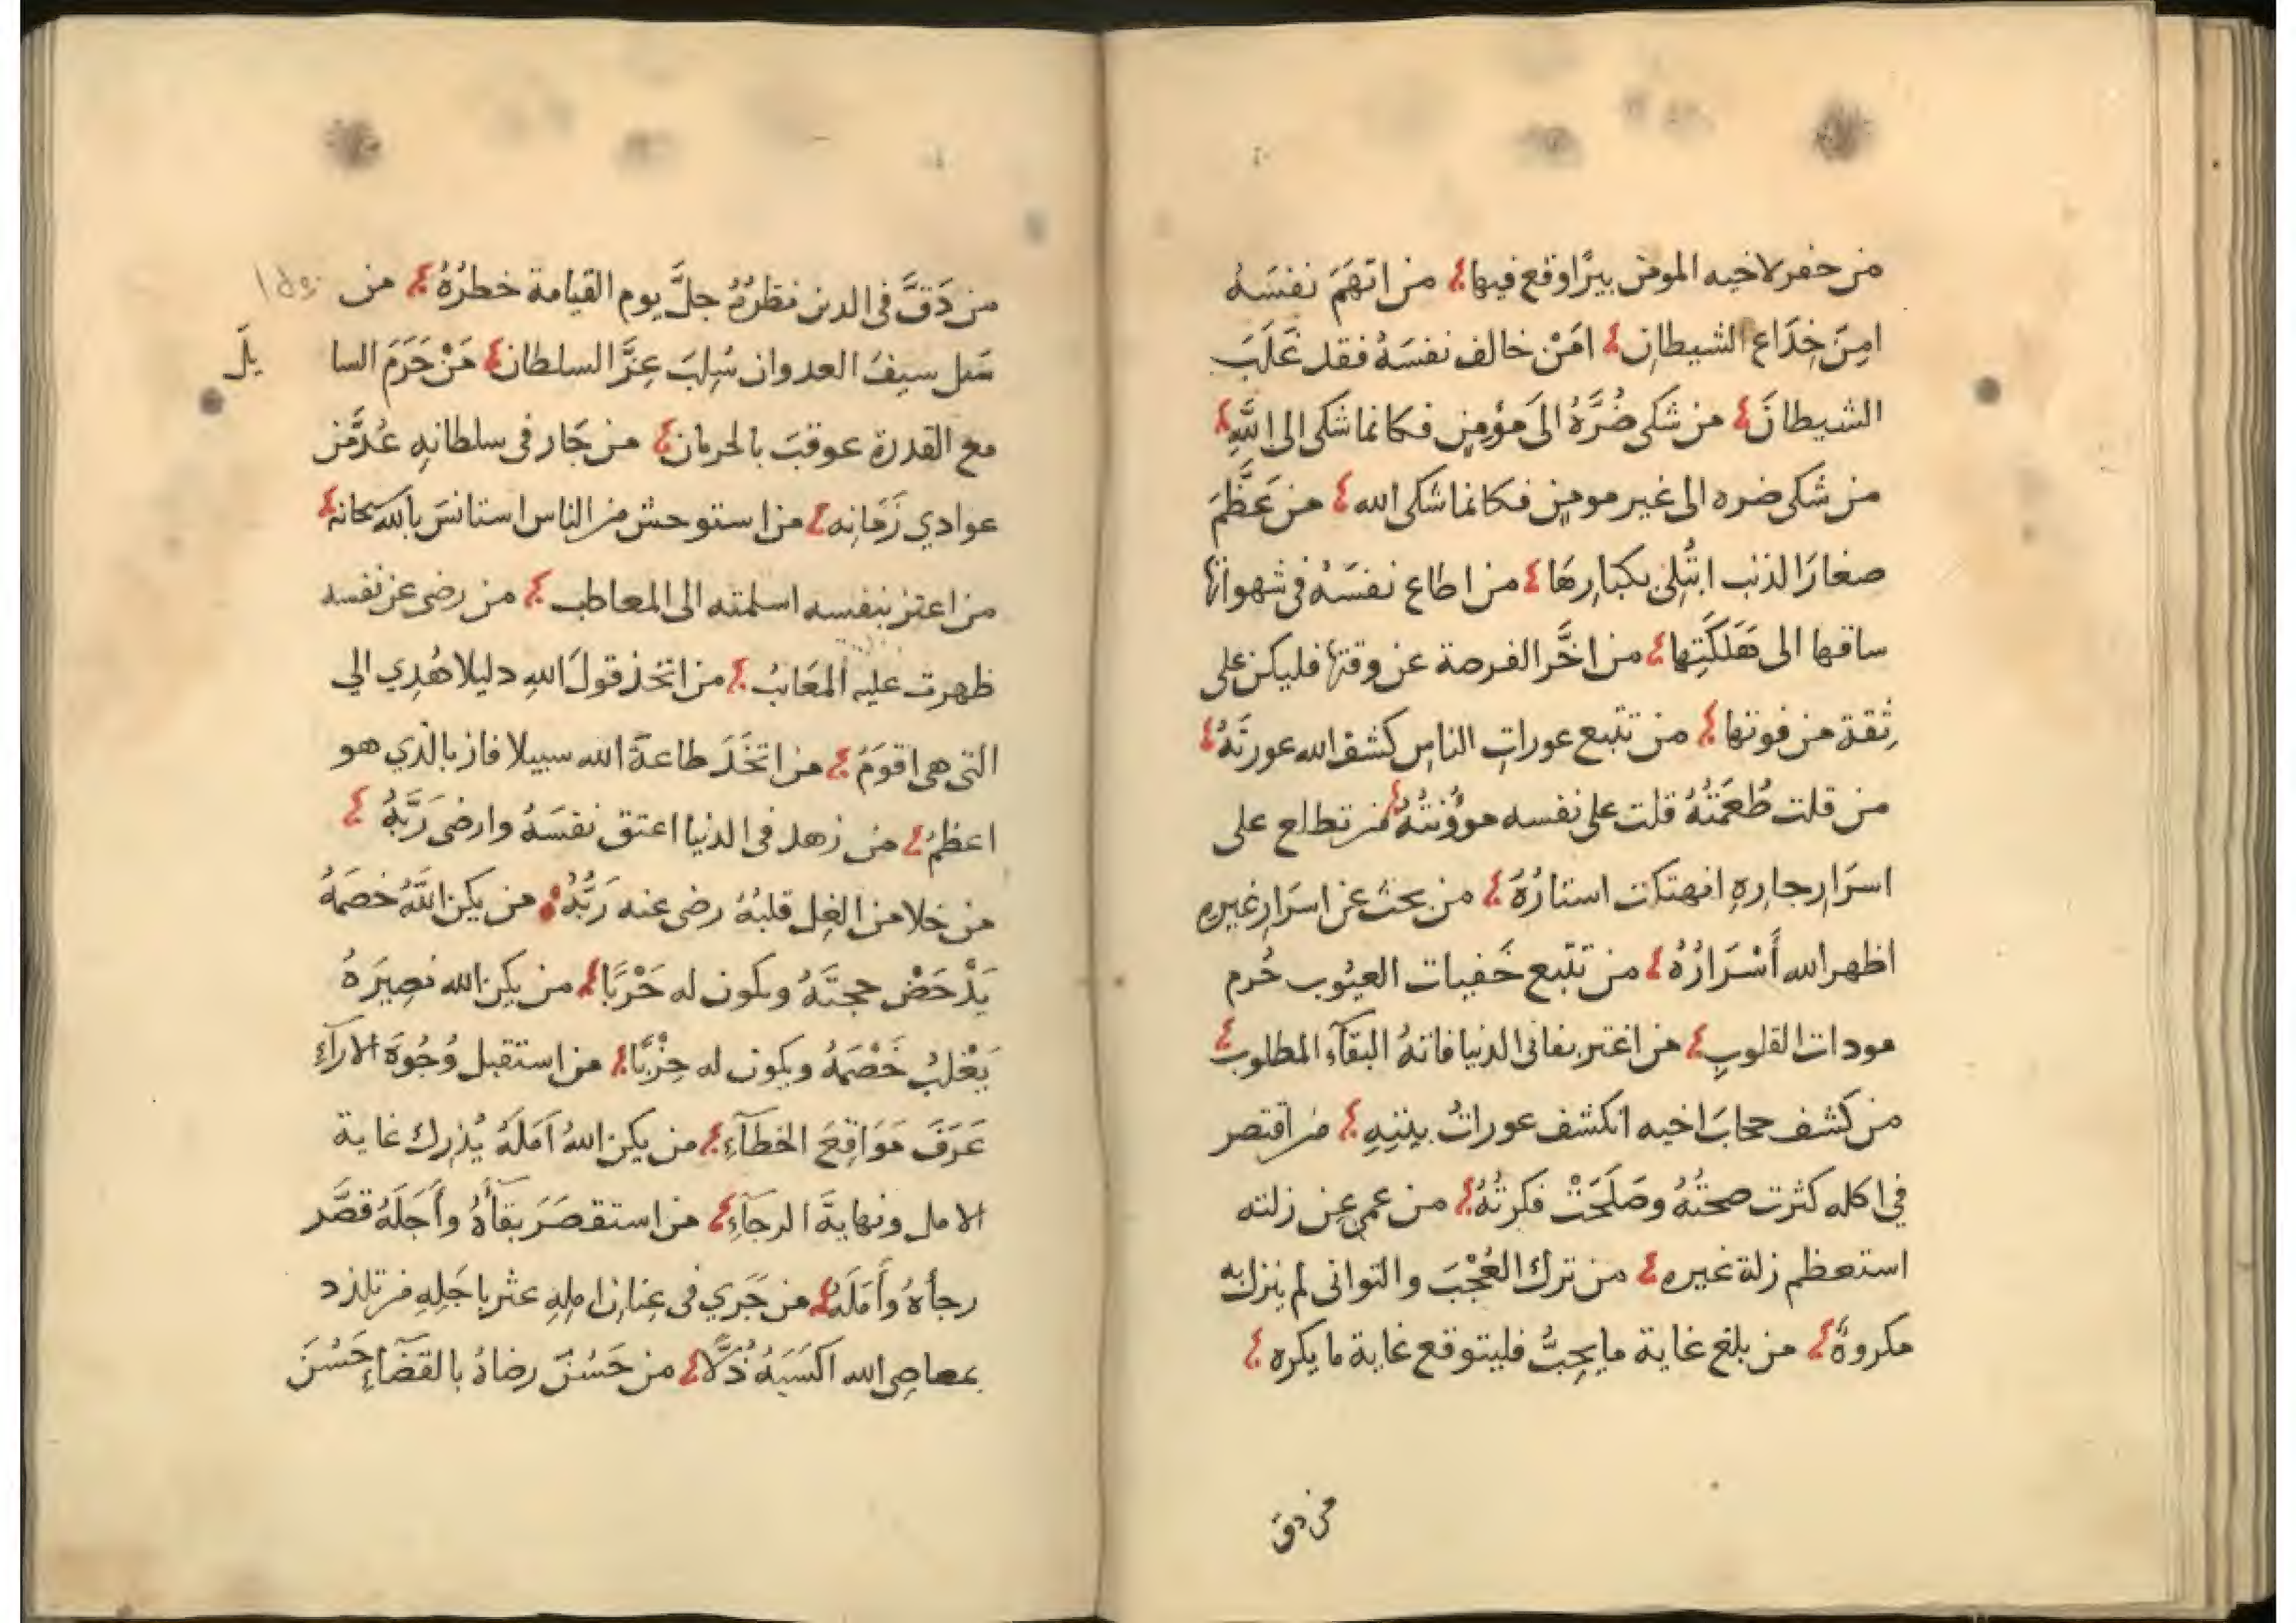 من حفر لاخيه المومن بيرًا وقع فيها من اتهَمَ نفسَهُ
امِنَ خِدَاع الشيطانِ امَنْ خالف نفسَهُ فقد غَلَبَ
الشيطانَ من شكى ضُرَّهُ الىَ مؤمِنٍ فكانما شكى الى اللَّهِ
من شكى ضره الى غير مومِنٍ فكانما شكى الله من عَظَّمَ
صغارَ الذنب ابتُلِىَ بكبارِهَا من اطاع نفسَهُ فى شهواتها
ساقها الى هَلَكَتِها من اخَّر الفرصة عن وقتها فليكن على
ثِقة من فوتها من تتبع عوراتِ الناسِ كشف الله عورتَهُ
من قلت طُعمَتُهُ قلت على نفسه موؤنتُهُ من تطلع على
اسرَارِ جارِهِ انهتكت استارُهُ من بحث عن اسرَارِ غيرِهِ
اظهر الله أَسْرَارُهُ من تتبع خَفيات العيُوب حُرم
مودات القلوبِ من اغتر بفانى الدنيا فاتهُ البقآء المطلوب
من كشف حجابَ اخيه انكشف عوراتُ بيتِهِ من اقتصر
في اكله كثرت صحتُهُ وصَلَحَتْ فكرتُهُ من عمى عن زلته
استعظم زلة غيرِهِ من ترك العُجْبَ والتوانى لم ينزل به
مكروهٌ من بلغ غاية ما يحِبُّ فليتوقع غاية ما يكره
من دق
من دَقَّ فى الدين نظرُهُ جلَّ يوم القيامة خطرُهُ من
سَل سيفَ العدوان سُلِبَ عِزَّ السلطان مَنْ حَرَمَ السا
يلَ
مع القدرة عوقبَ بالحرمان من جَار فى سلطانِهِ عُدَّ من
عوادي زَمَانِه من استوحش من الناس استانسَ بالله سبحانه
من اعتز بنفسه اسلمته الى المعاطب من رضى عن نفسه
ظهرت عليه المعَائبُ من اتخذ قولَ اللهِ دليلا هُدِي الي
التى هى اقوَمُ من اتخَذَ طاعةَ الله سبيلا فاز بالّذي هو
اعظمُ من زهد فى الدنيا اعتق نفسَهُ وارضى رَبَّهُ
من خلا من الغِل قلبُهُ رضى عنه رَبُّهُ من يكن اللَّهُ خصمَهُ
يَدْحَضْ حجتَهُ ويكون له حَرْبًا من يكن الله نصِيرَهُ
يَغْلِبُ خَصْمَهُ ويكون له حِزْبًا من استقبل وُجُوهَ الارآءِ
عَرَفَ مَوَاقِعَ الخطآءِ من يكن اللهُ امَلَهُ يُدْرِك غاية
الامل ونهايةَ الرجآءِ من استقصَرَ بقآأهُ وأَجَلَهُ قصَّر
رجأهُ وأَمَلَهُ من جَرَي فى عِنانِ امِلِهِ عثر باجَلِهِ من تلذد
بمعاصِى الله اكسَبَهُ ذُلًّا من حَسُنَ رضاهُ بالقضآءِ حَسُنَ